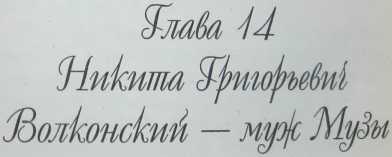 Глава 14
Никита Григорьевич
Волконский — муж Музы